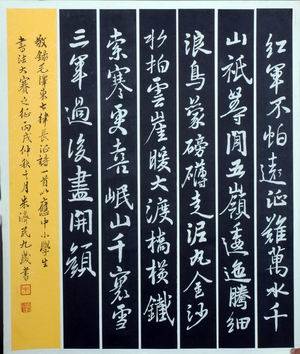 紅軍不怕遠征難萬水千
山祇等閒五嶺逶迤騰細
浪烏蒙磅礴走泥丸金沙
水拍雲崖暖大渡橋橫鐵
索寒更喜岷山千裏雪
三軍過後盡開顏
敬錄毛澤東七律長征詩一首以應中小學生
書法大賽之征丙戌仲秋十月朱濟民九歲書